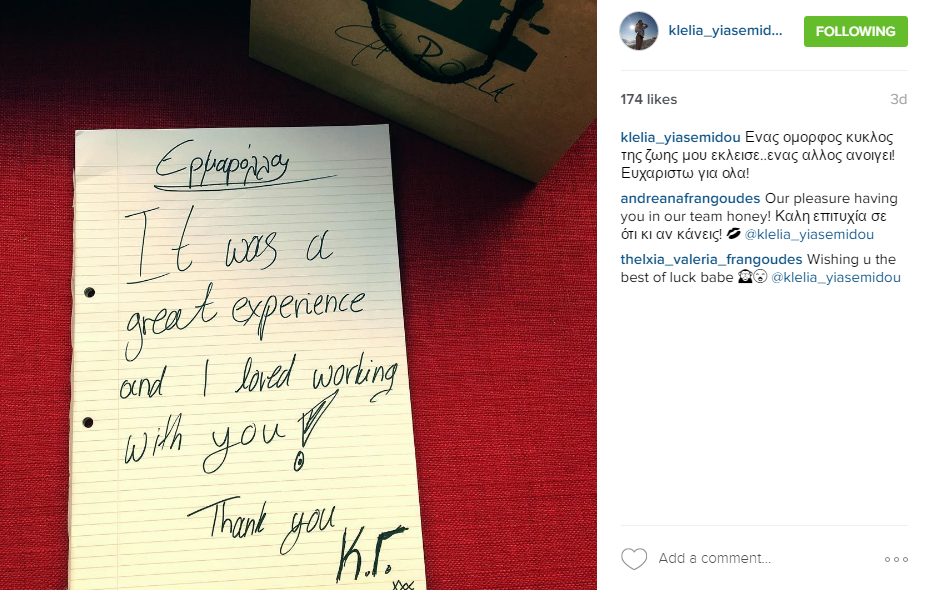 RОLLA
Ερμαρόλλα
It was a
great experience
and I loved working
with you!
Thank you
K.Γ.
xxx
klelia_yiasemid...
FOLLOWING
174 likes
3d
klelia_yiasemidou Ενας ομορφος κυκλος
της ζωης μου εκλεισε..ενας αλλος ανοιγει!
Ευχαριστω για ολα!
andreanafrangoudes Our pleasure having
you in our team honey! Καλη επιτυχία σε
ότι κι αν κάνεις! 💋 @klelia_yiasemidou
thelxia_valeria_frangoudes Wishing u the
best of luck babe @klelia_yiasemidou
Add a comment...